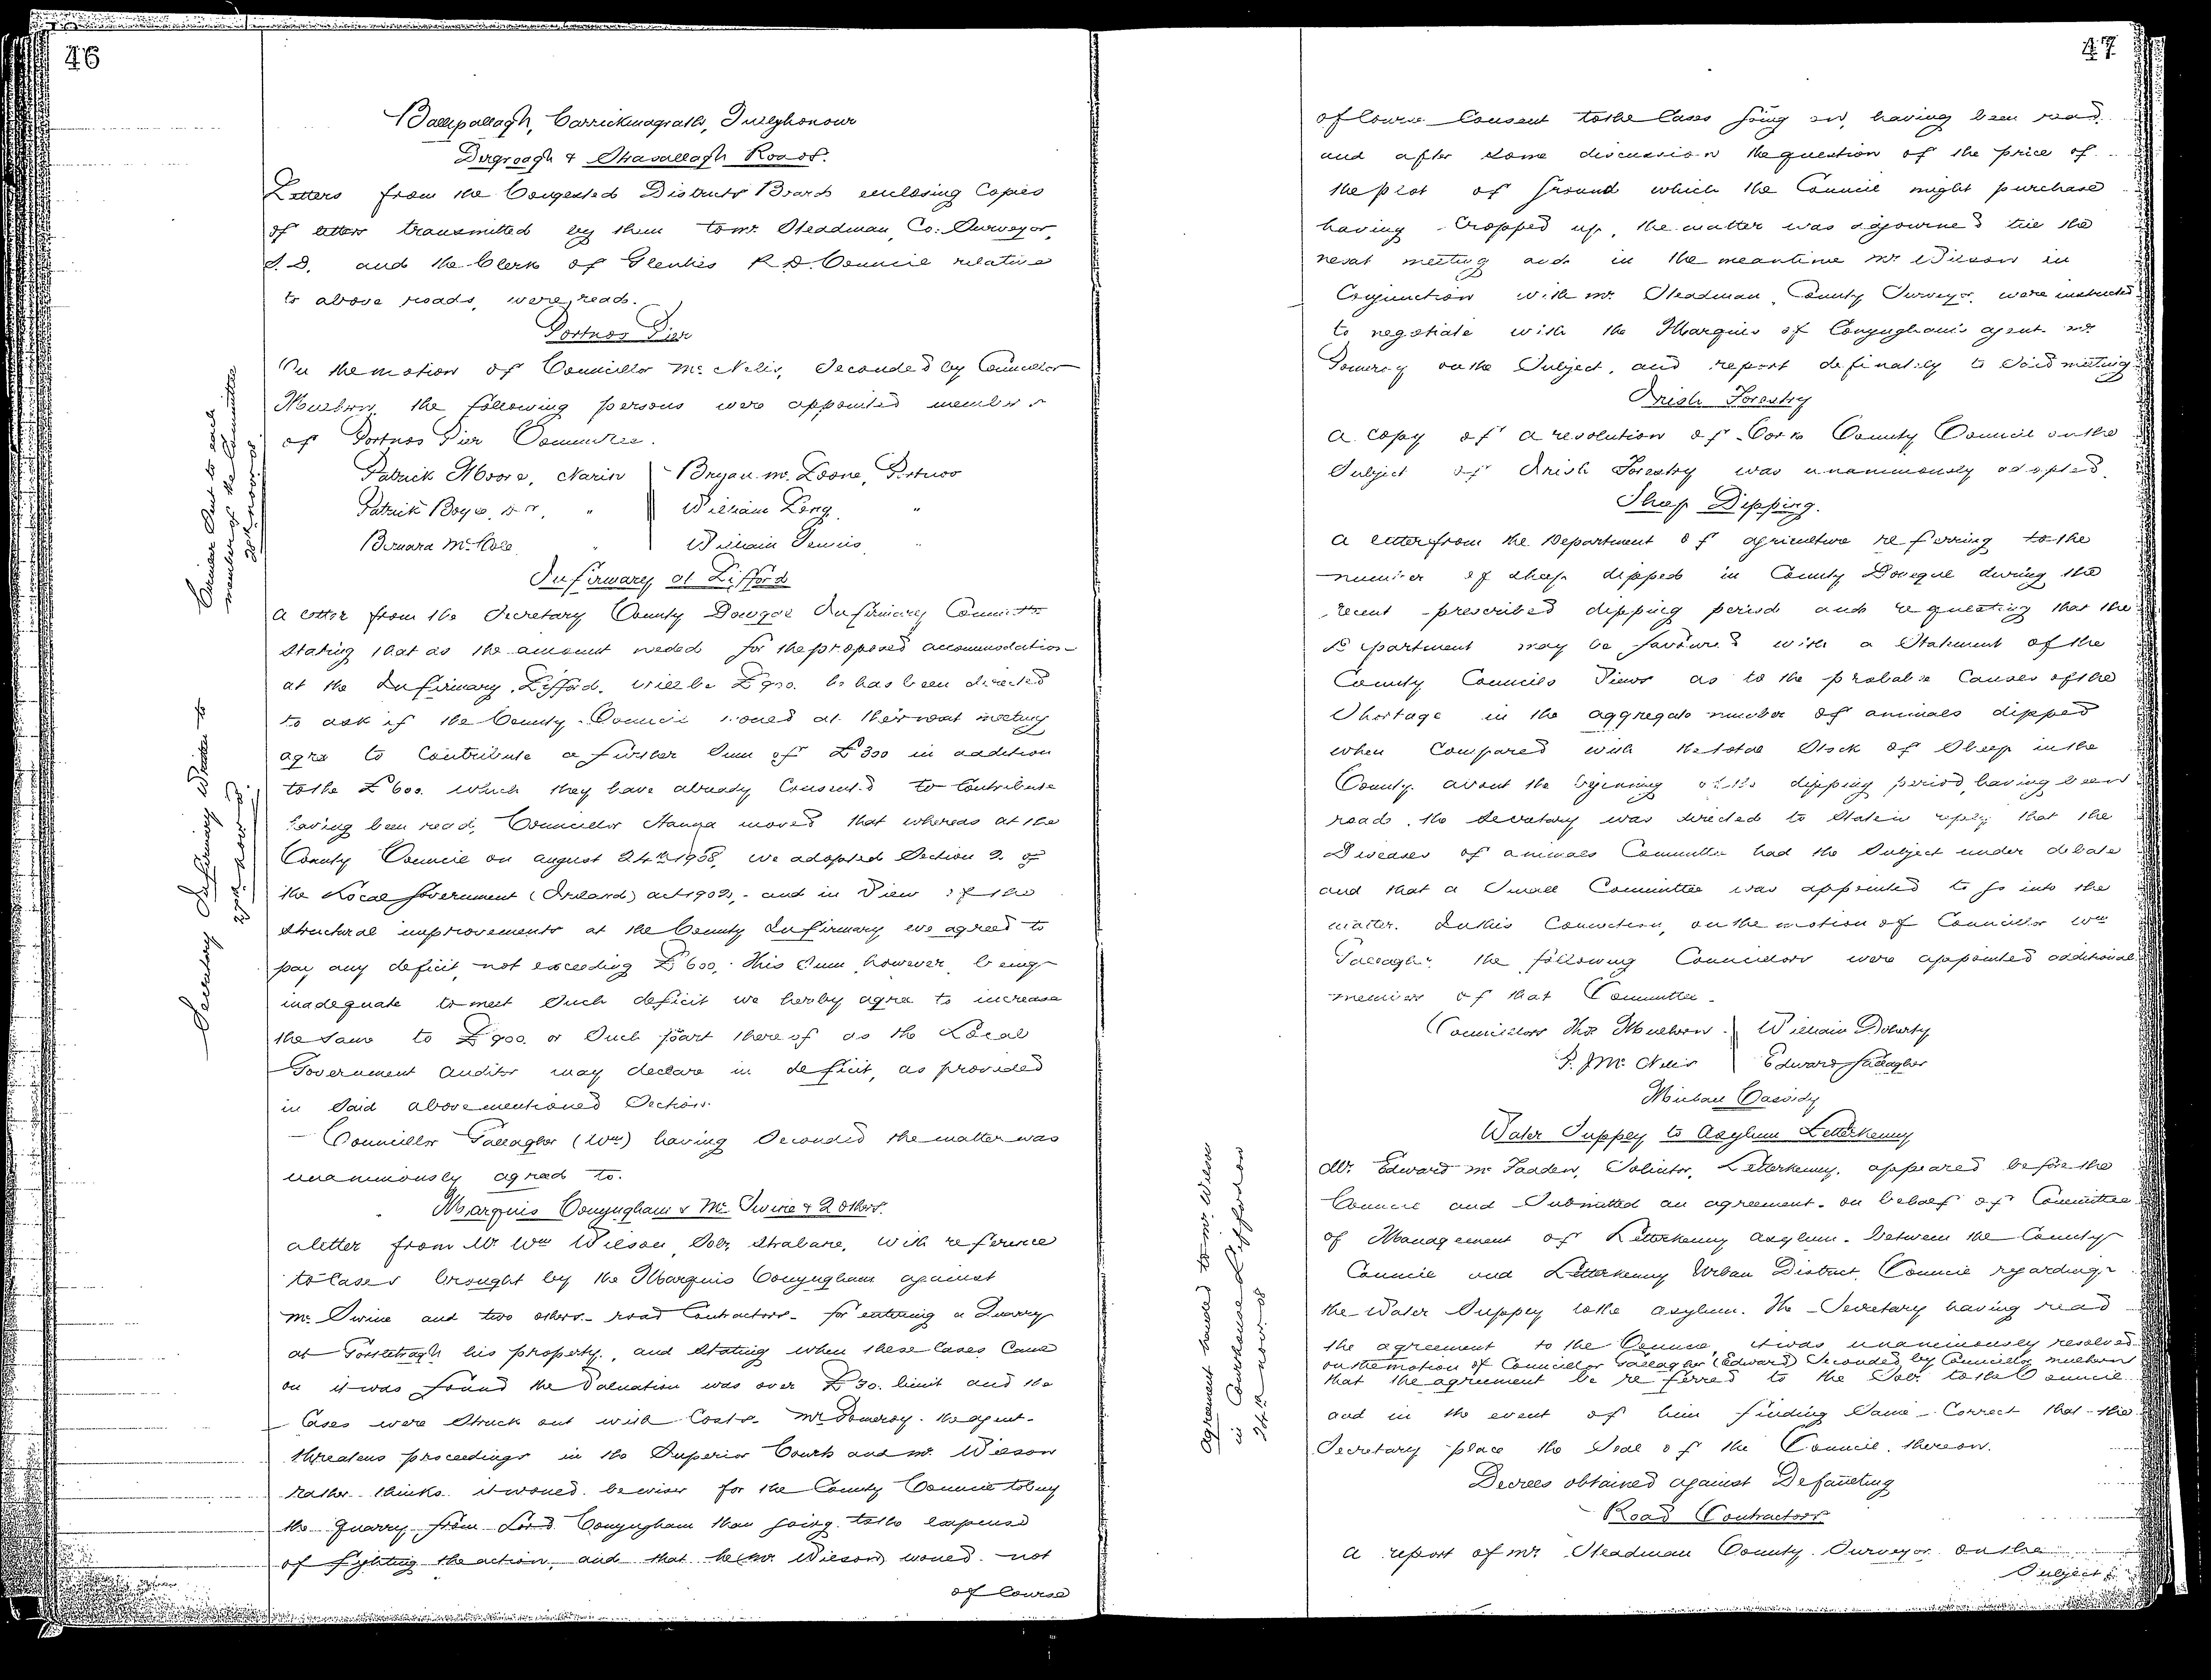 46
Ballipallagh, Carrickmagrath, Tullyhonour
Dergroagh & Straballagh Roads.
Letters from the Congested Districts Board enclosing Copies
of letters transmitted by them to Mr. Steadman, Co: Surveyor,
S.D. and the Clerk of Glenties R.D. Council relative
to above roads, were read.
Portnoo Pier
On the motion of Councillor Mc Nelis, Seconded by Councillor
Mulhern, the following persons were appointed members
of Portnoo Pier Committee.
Patrick Moore, Narin | Bryan Mc Loone, Portnoo
Patrick Boyle, Sr, " | William Long "
Bernard McCole " | William Dennis "
Circular Sent to each
member of the Committee
20th Novr 08
Infirmary at Lifford
a letter from the Secretary County Donegal Infirmary Committee
Stating that as the amount needed for the proposed accommodation
at the Infirmary, Lifford, will be £900. he has been directed
to ask if the County Council would at their next meeting
agree to Contribute a further Sum of £300 in addition
to the £600. which they have already Consented to Contribute
having been read, Councillor Hanna moved that whereas at the
County Council on august 24th 1908, we adopted Section 2. of
the Local Government (Ireland) act 1902, - and in View of the
Structural improvements at the County Infirmary we agreed to
pay any deficit, not exceeding £600, this Sum however, being
inadequate to meet Such deficit we hereby agree to increase
the Same to £900. or Such part thereof as the Local
Government auditor may declare in deficit, as provided
in Said abovementioned Section.
Councillor Gallagher (Wm) having Seconded the matter was
unanimously agreed to.
Secretary Infirmary Written to
Marquis Conyngham v Mc Swine & 2 others.
a letter from Mr Wm Wilson, Solr, Strabane, with reference
to Cases brought by the Marquis Conyngham against
Mc Swine and two others - road Contractors - for entering a Quarry
at his property, and Stating when these Cases Came
on it was found the Valuation was over £30. limit and the
Cases were Struck out with Costs. Mr Pomeroy - the agent -
threatens proceedings in the Superior Courts and Mr. Wilson
rather thinks it would be wiser for the County Council to buy
the Quarry from Lord Conyngham than going to the expense
of fighting the action, and that he (Mr. Wilson) would not
of Course
47
of Course Consent to the Cases going on, having been read
and after some discussion the question of the price of
the plot of Ground which the Council might purchase
having Cropped up, the matter was adjourned till the
next meeting and in the meantime Mr Wilson in
Conjunction with Mr. Steadman, County Surveyor, were instructed
to negotiate with the Marquis of Conyngham's agent Mr
Pomeroy on the Subject, and report definately to Said meeting.
Irish Forestry
a Copy of a resolution of Cork County Council on the
Subject of Irish Forestry was unanimously adopted.
Sheep Dipping.
a letter from the Department of agriculture referring to the
number of sheep dipped in County Donegal during the
recent prescribed dipping period and requesting that the
Department may be favoured with a Statement of the
County Councils Views as to the probable Causes of the
Shortage in the aggregate number of animals dipped
when Compared with the total Stock of Sheep in the
County about the beginning of the dipping period, having been
read, the Secretary was directed to State in reply that the
Diseases of animals Committee had the Subject under debate
and that a Small Committee was appointed to go into the
matter. In this Connection, on the motion of Councillor Wm
Gallagher the following Councillors were appointed additional
members of that Committee.
Councillors Thos Mulhern | William Doherty
P. J Mc Nelis | Edward Gallagher
Michael Cassidy
Water Supply to Asylum Letterkenny
Mr. Edward Mc Fadden, Solicitor, Letterkenny, appeared before the
Council and Submitted an agreement - on behalf of Committee
of Management of Letterkenny Asylum - between the County
Council and Letterkenny Urban District Council regarding
the Water Supply to the Asylum. The Secretary having read
the agreement to the Council, it was unanimously resolved
on the motion of Councillor Gallagher (Edward) Seconded by Councillor Mulhern
that the agreement be referred to the Solr. to the Council
and in the event of him finding Same Correct that the
Secretary place the Seal of the Council thereon.
agreement handed to Mr. Wilson
in Courthouse Lifford on
24th Novr 08
Decrees obtained against Defaulting
Road Contractors
a report of Mr Steadman County Surveyor on the
Subject